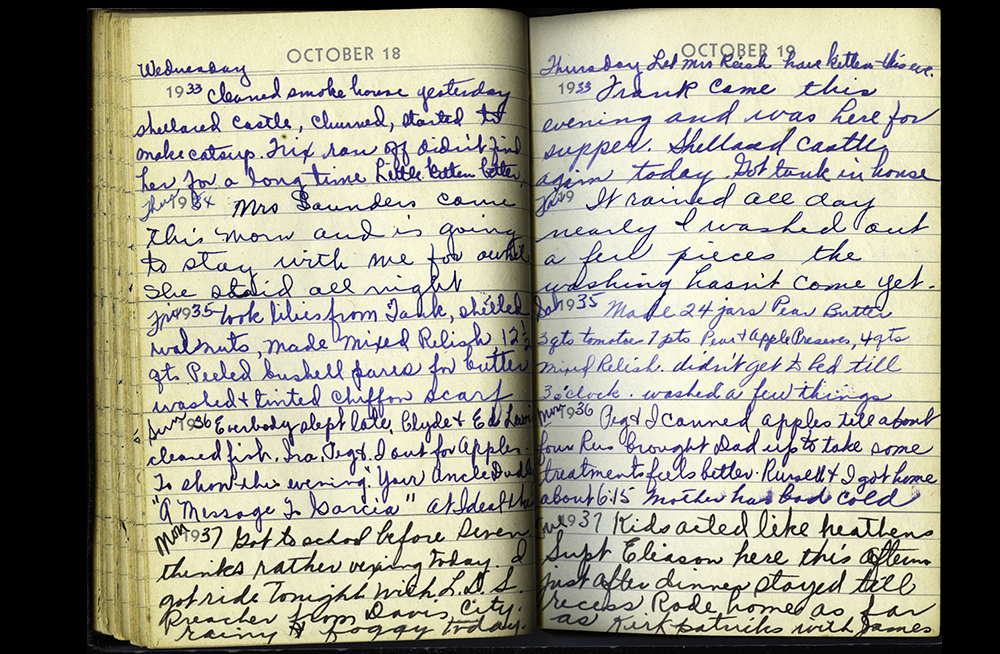 OCTOBER 18
Wednesday
1933 Cleaned smoke house yesterday
shellared castle, churned, started to
make catsup. Trix ran off didn't find
her for a long time. Little kitten better.
Thur 1934 Mrs Saunders came
this morn and is going
to stay with me for awhile
She staid all night
Fri 1935 Took lilies from Tank, shelled
walnuts, made Mixed Relish 12½
qts Peeled bushell pares for butter
washed & tinted chiffon scarf
Sun 1936 Everbody slept late, Clyde & Ed Lewis
cleaned fish. Ira, Peg & I out for Apples.
To show this evening. "Your Uncle Dudley
"A Message To Garcia" at Ideal
Mon 1937 Got to school before Seven
thinks rather vexing today. I
got ride Tonight with L.D.S.
Preacher from Davis City.
rainy & foggy today.
OCTOBER 19
Thursday Let Mrs Reash have kitten this eve.
1933 Frank came this
evening and was here for
supper. Shellaced castle
again today. Got tank in house
It rained all day
nearly I washed out
a few pieces the
washing hasn't come yet.
Sat 1935 Made 24 jars Pear Butter
3 qts tomatoes 7 pts Pear & Apple Preserves, 4 qts
mixed Relish. didn't get to bed till
3 o'clock. washed a few things
Mon 1936 Peg & I canned apples till about
four Rus brought Dad up to take some
treatments feels better. Russell & I got home
about 6:15 Mother has bad cold
Tue 1937 Kids acted like heathens
Supt Eliason here this aftern
just after dinner stayed till
recess. Rode home as far
as Kirkpatricks with James